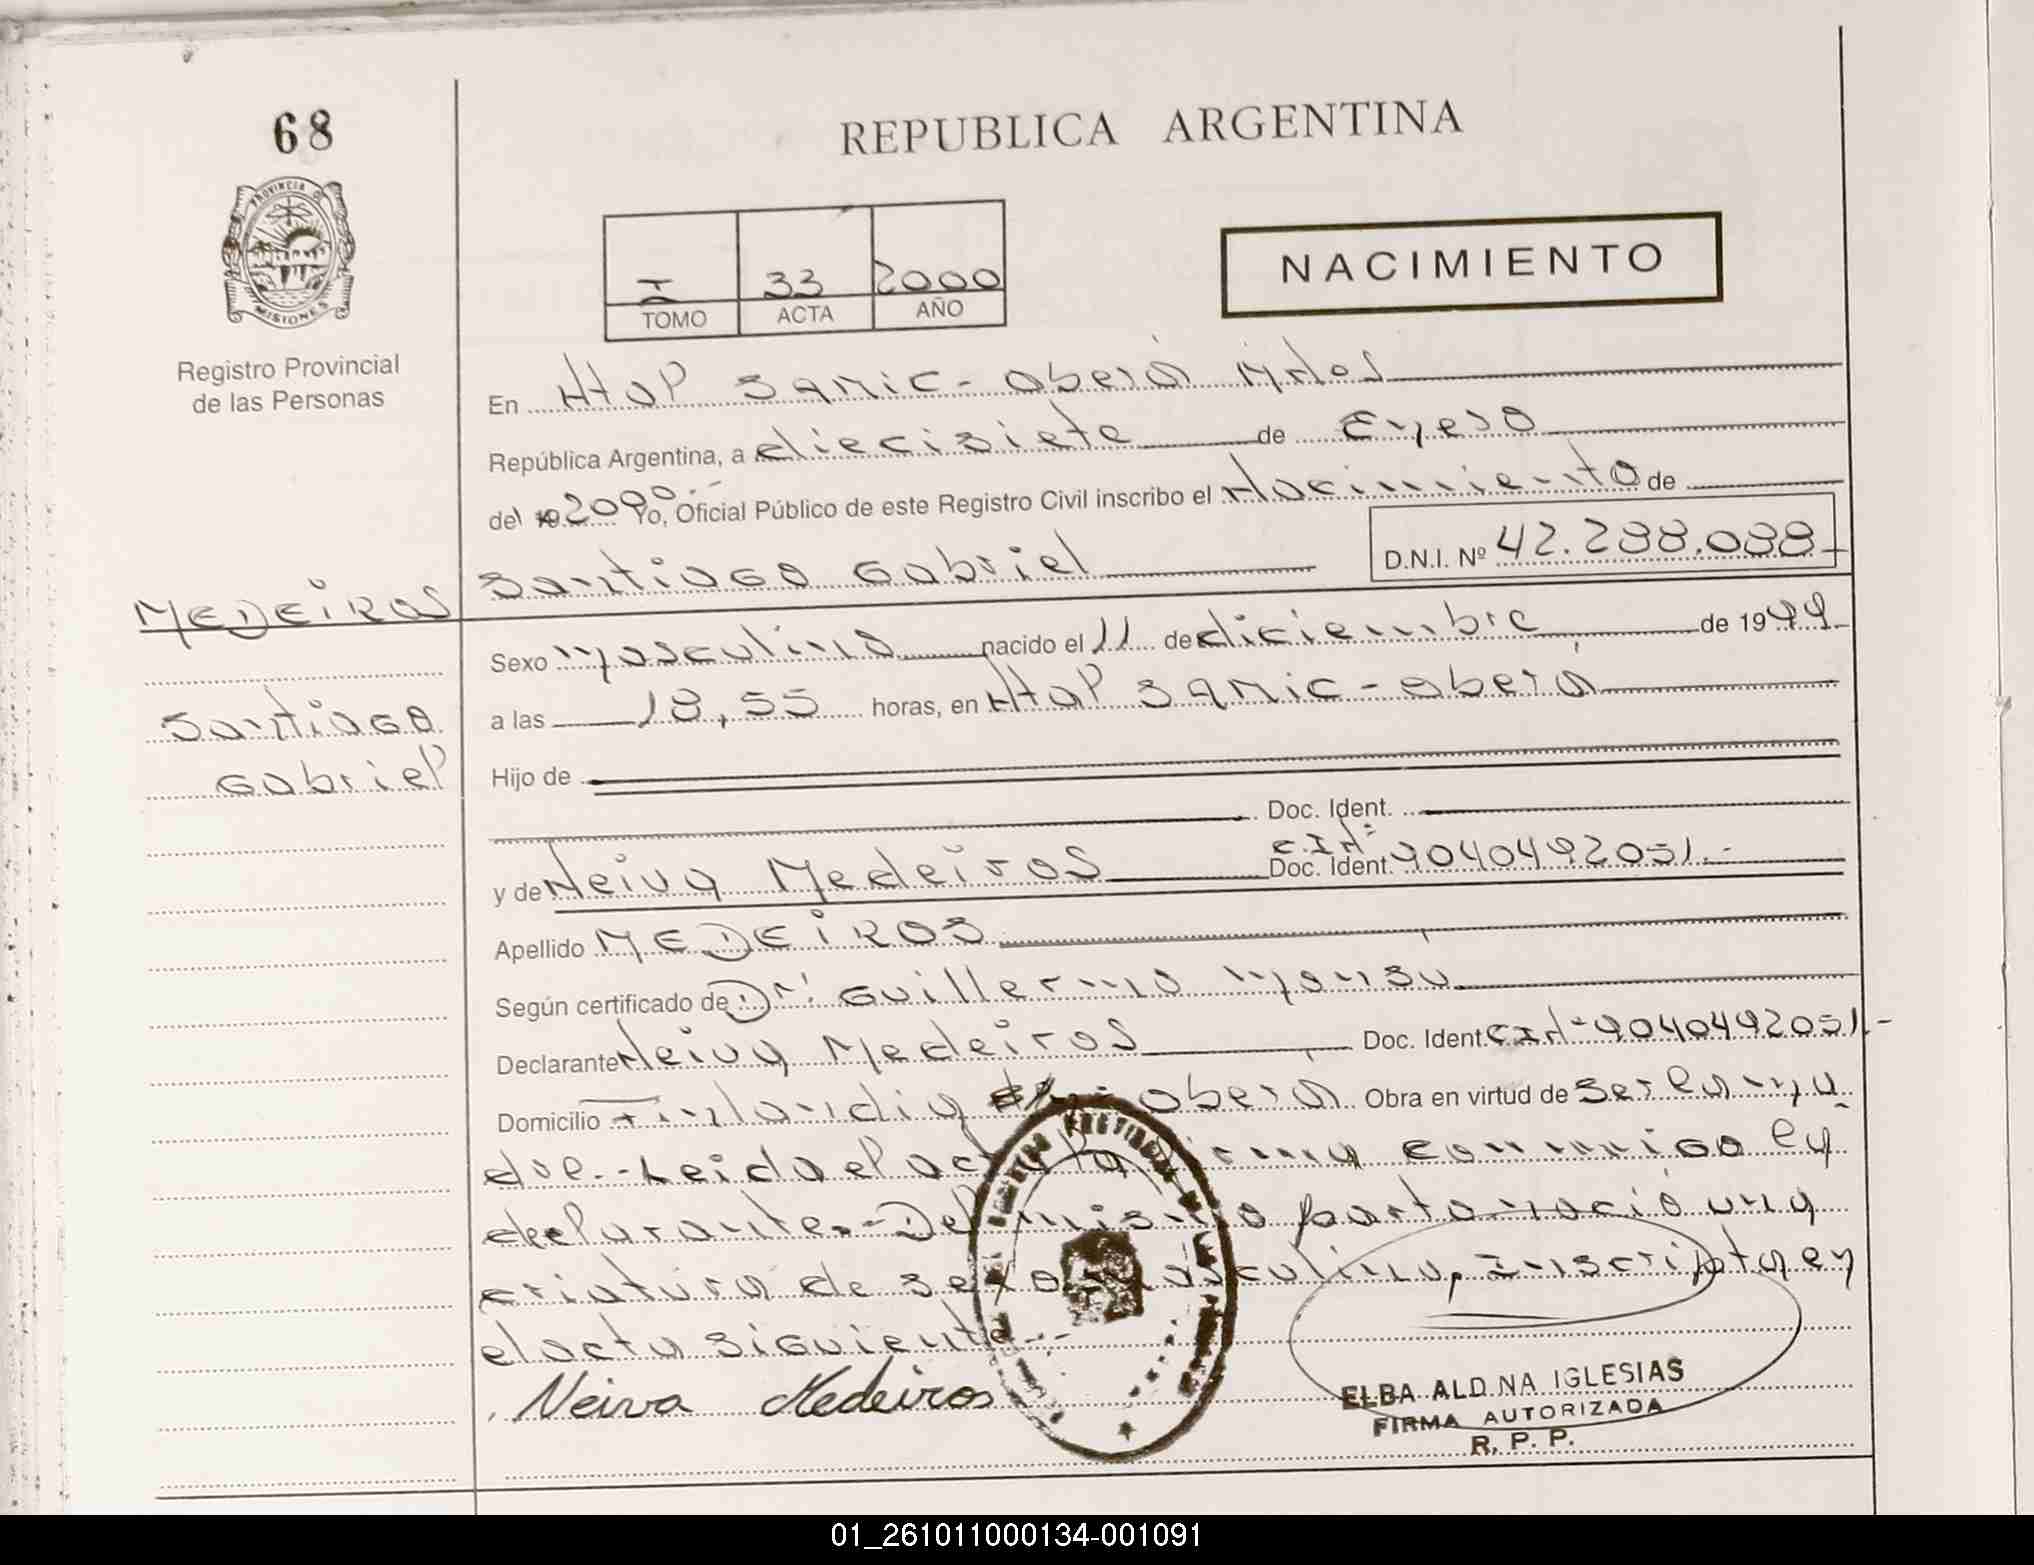 68
REPUBLICA ARGENTINA
PROVINCIA D
MISIONES
I 33 2000
TOMO ACTA AÑO
NACIMIENTO
Registro Provincial
de las Personas
En Htal SAMIC - Oberá Mnes
República Argentina, a diecisiete de Enero
del 2000.- Yo, Oficial Público de este Registro Civil inscribo el Nacimiento de
Santiago Gabriel D.N.I. Nº 42.288.088
MEDEIROS
Santiago
Gabriel
Sexo masculino nacido el 11 de diciembre de 1999
a las 18,55 horas, en Htal SAMIC - Oberá
Hijo de
Doc. Ident.
y de Neiva Medeiros Doc. Ident. C.I.Nº 9040492051.-
Apellido MEDEIROS
Según certificado de Dr. Guillermo
Declarante Neiva Medeiros Doc. Ident. CIN- 9040492051.-
Domicilio Finlandia Oberá Obra en virtud de ser la ma
dre.- Leida el acta la firma conmigo la
declarante.- Del mismo parto nació una
criatura de sexo masculino, inscripta en
el acta siguiente.-
Neiva Medeiros
ELBA ALDINA IGLESIAS
FIRMA AUTORIZADA
R. P. P.
01_261011000134-001091